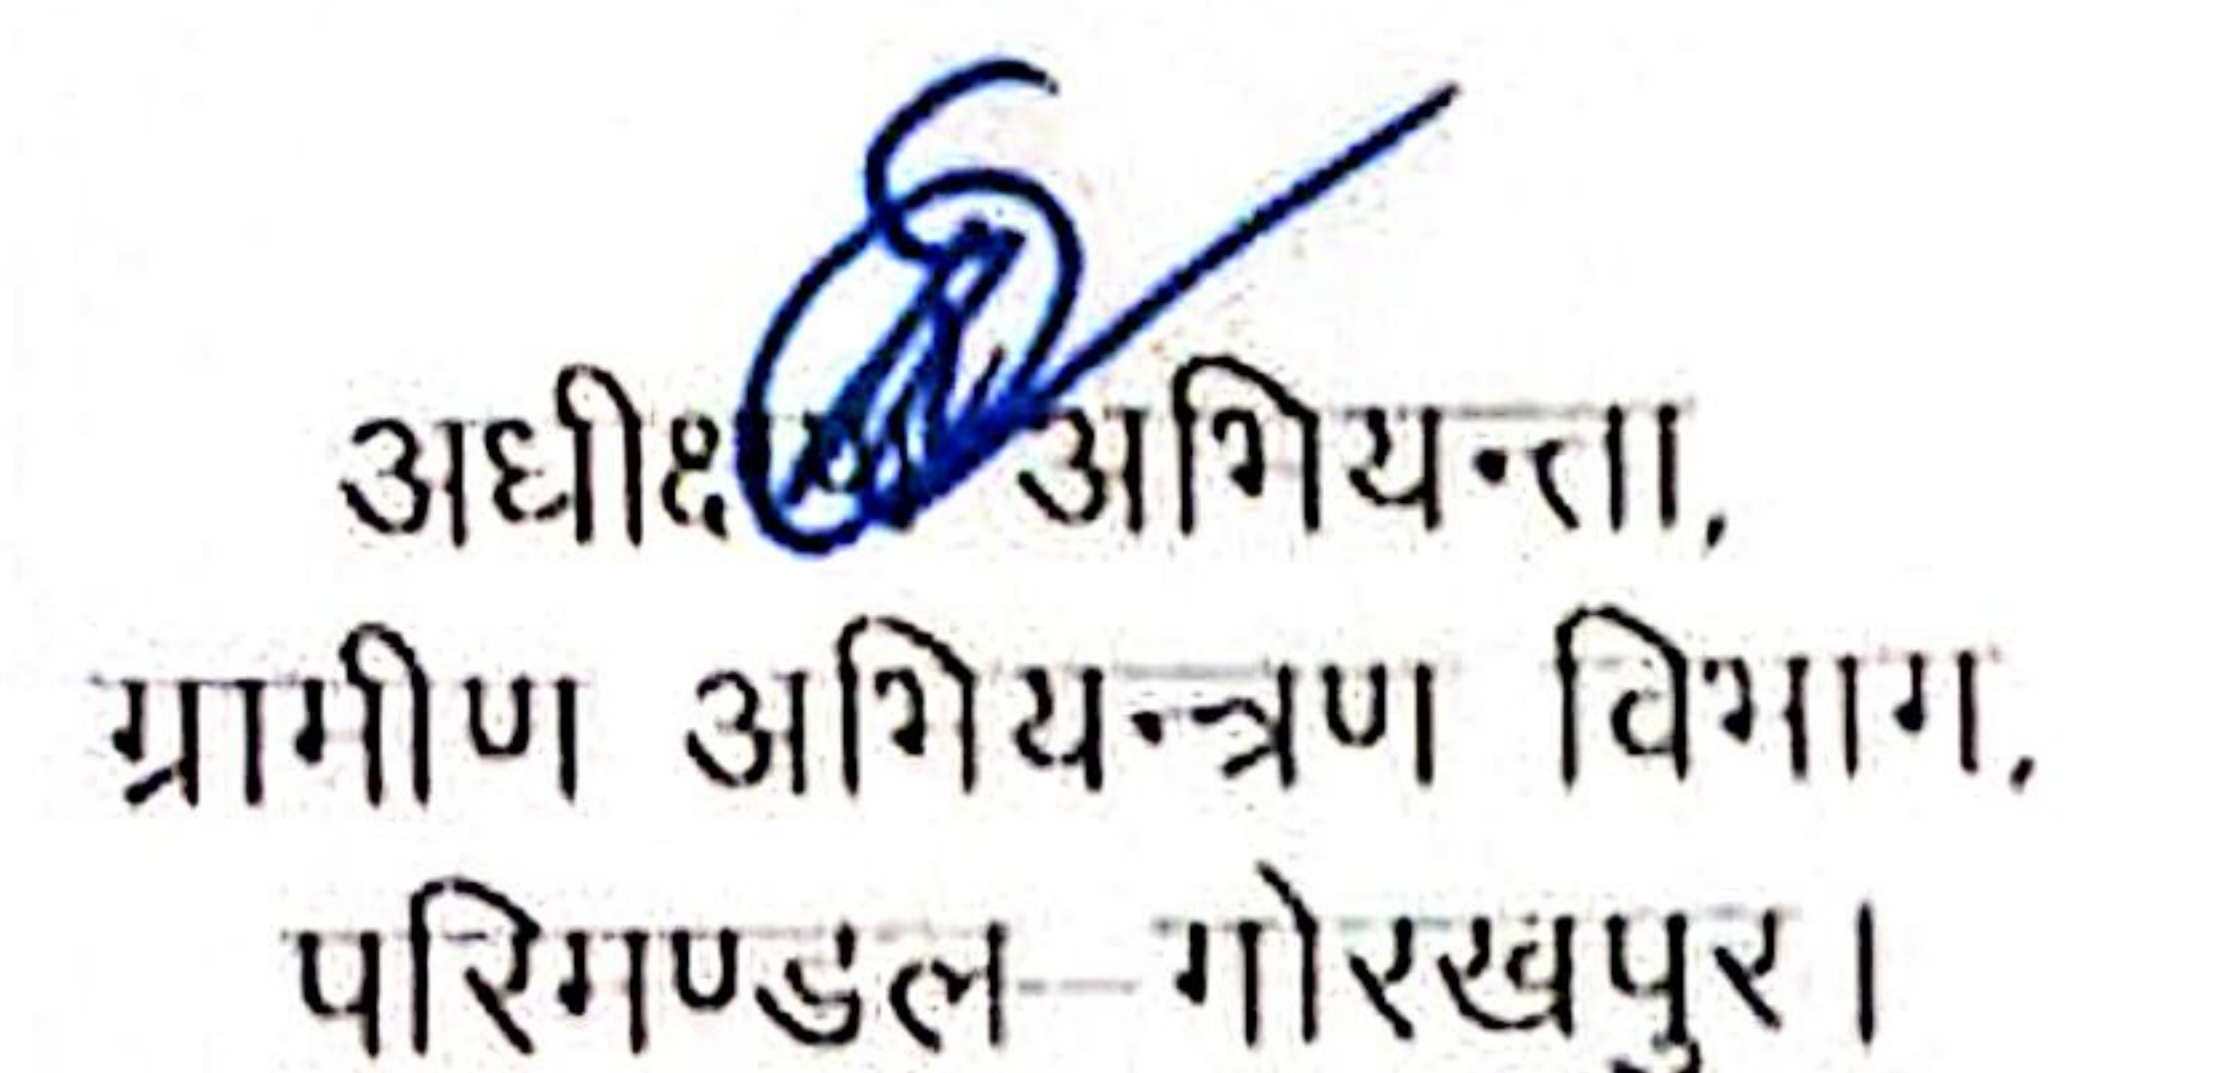 अधीक्षण अभियन्ता,
ग्रामीण अभियन्त्रण विभाग,
परिमण्डल-गोरखपुर।